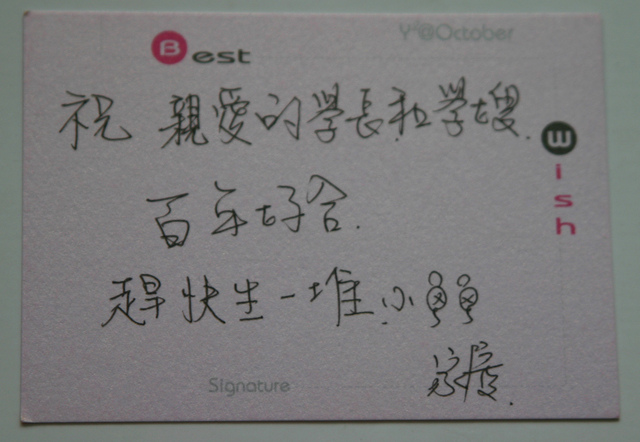 Best
Y²@October
祝 親愛的學長和學嫂.
Wish
百年好合.
趕快生一堆小
Signature